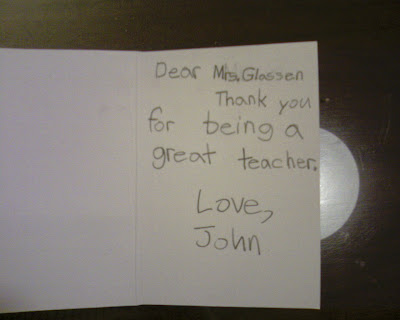 Dear Mrs. Glassen
Thank you
for being a
great teacher.
Love,
John